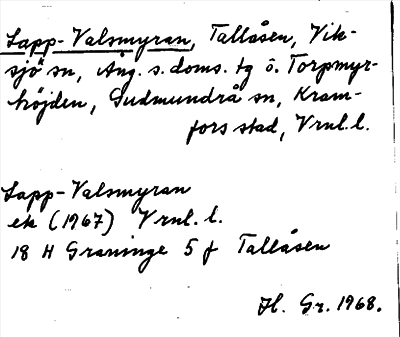 Lapp-Valsmyran, Tallåsen, Vik-
sjö sn, Ång. s. doms. tg ö. Torpmyr-
höjden, Gudmundrå sn, Kram-
fors stad, Vrnl. l.
Lapp-Valsmyran
ek (1967) Vrnl. l.
18 H Graninge 5 f Tallåsen
Hl. Gr. 1968.